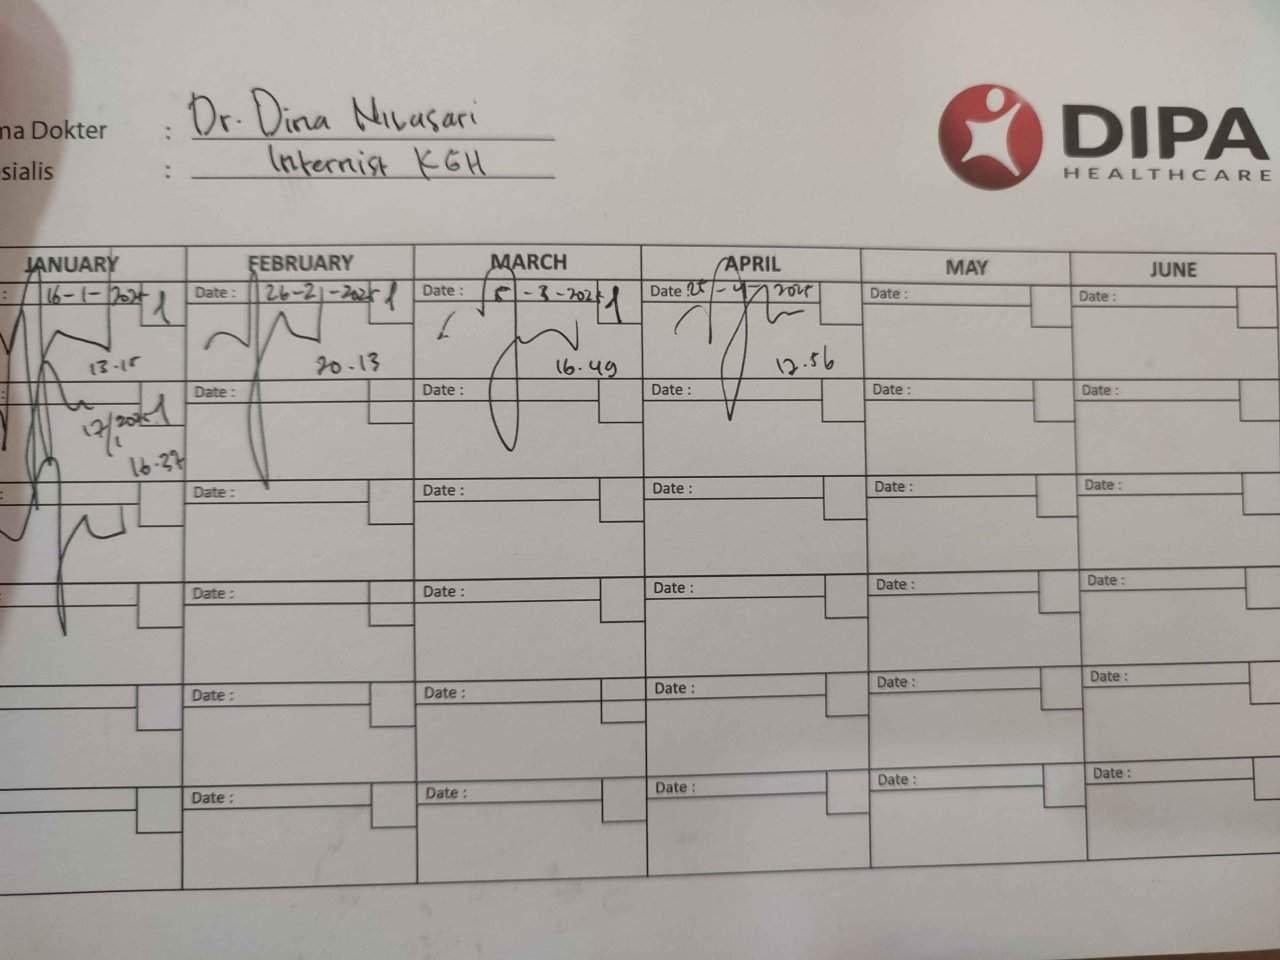 na Dokter : Dr. Dina Nilasari
sialis : Internist KGH
DIPA
HEALTHCARE
JANUARY FEBRUARY MARCH APRIL MAY JUNE
: 16-1-2025 1 Date : 26-2-2025 1 Date : 5-3-2025 1 Date : 25-4-2025 Date : Date :
13-15 20.13 16.49 12.56
: 1 Date : Date : Date : Date : Date :
17/1 2025
16.37
: Date : Date : Date : Date : Date :
: Date : Date : Date : Date : Date :
Date : Date : Date : Date : Date :
Date : Date : Date : Date : Date :